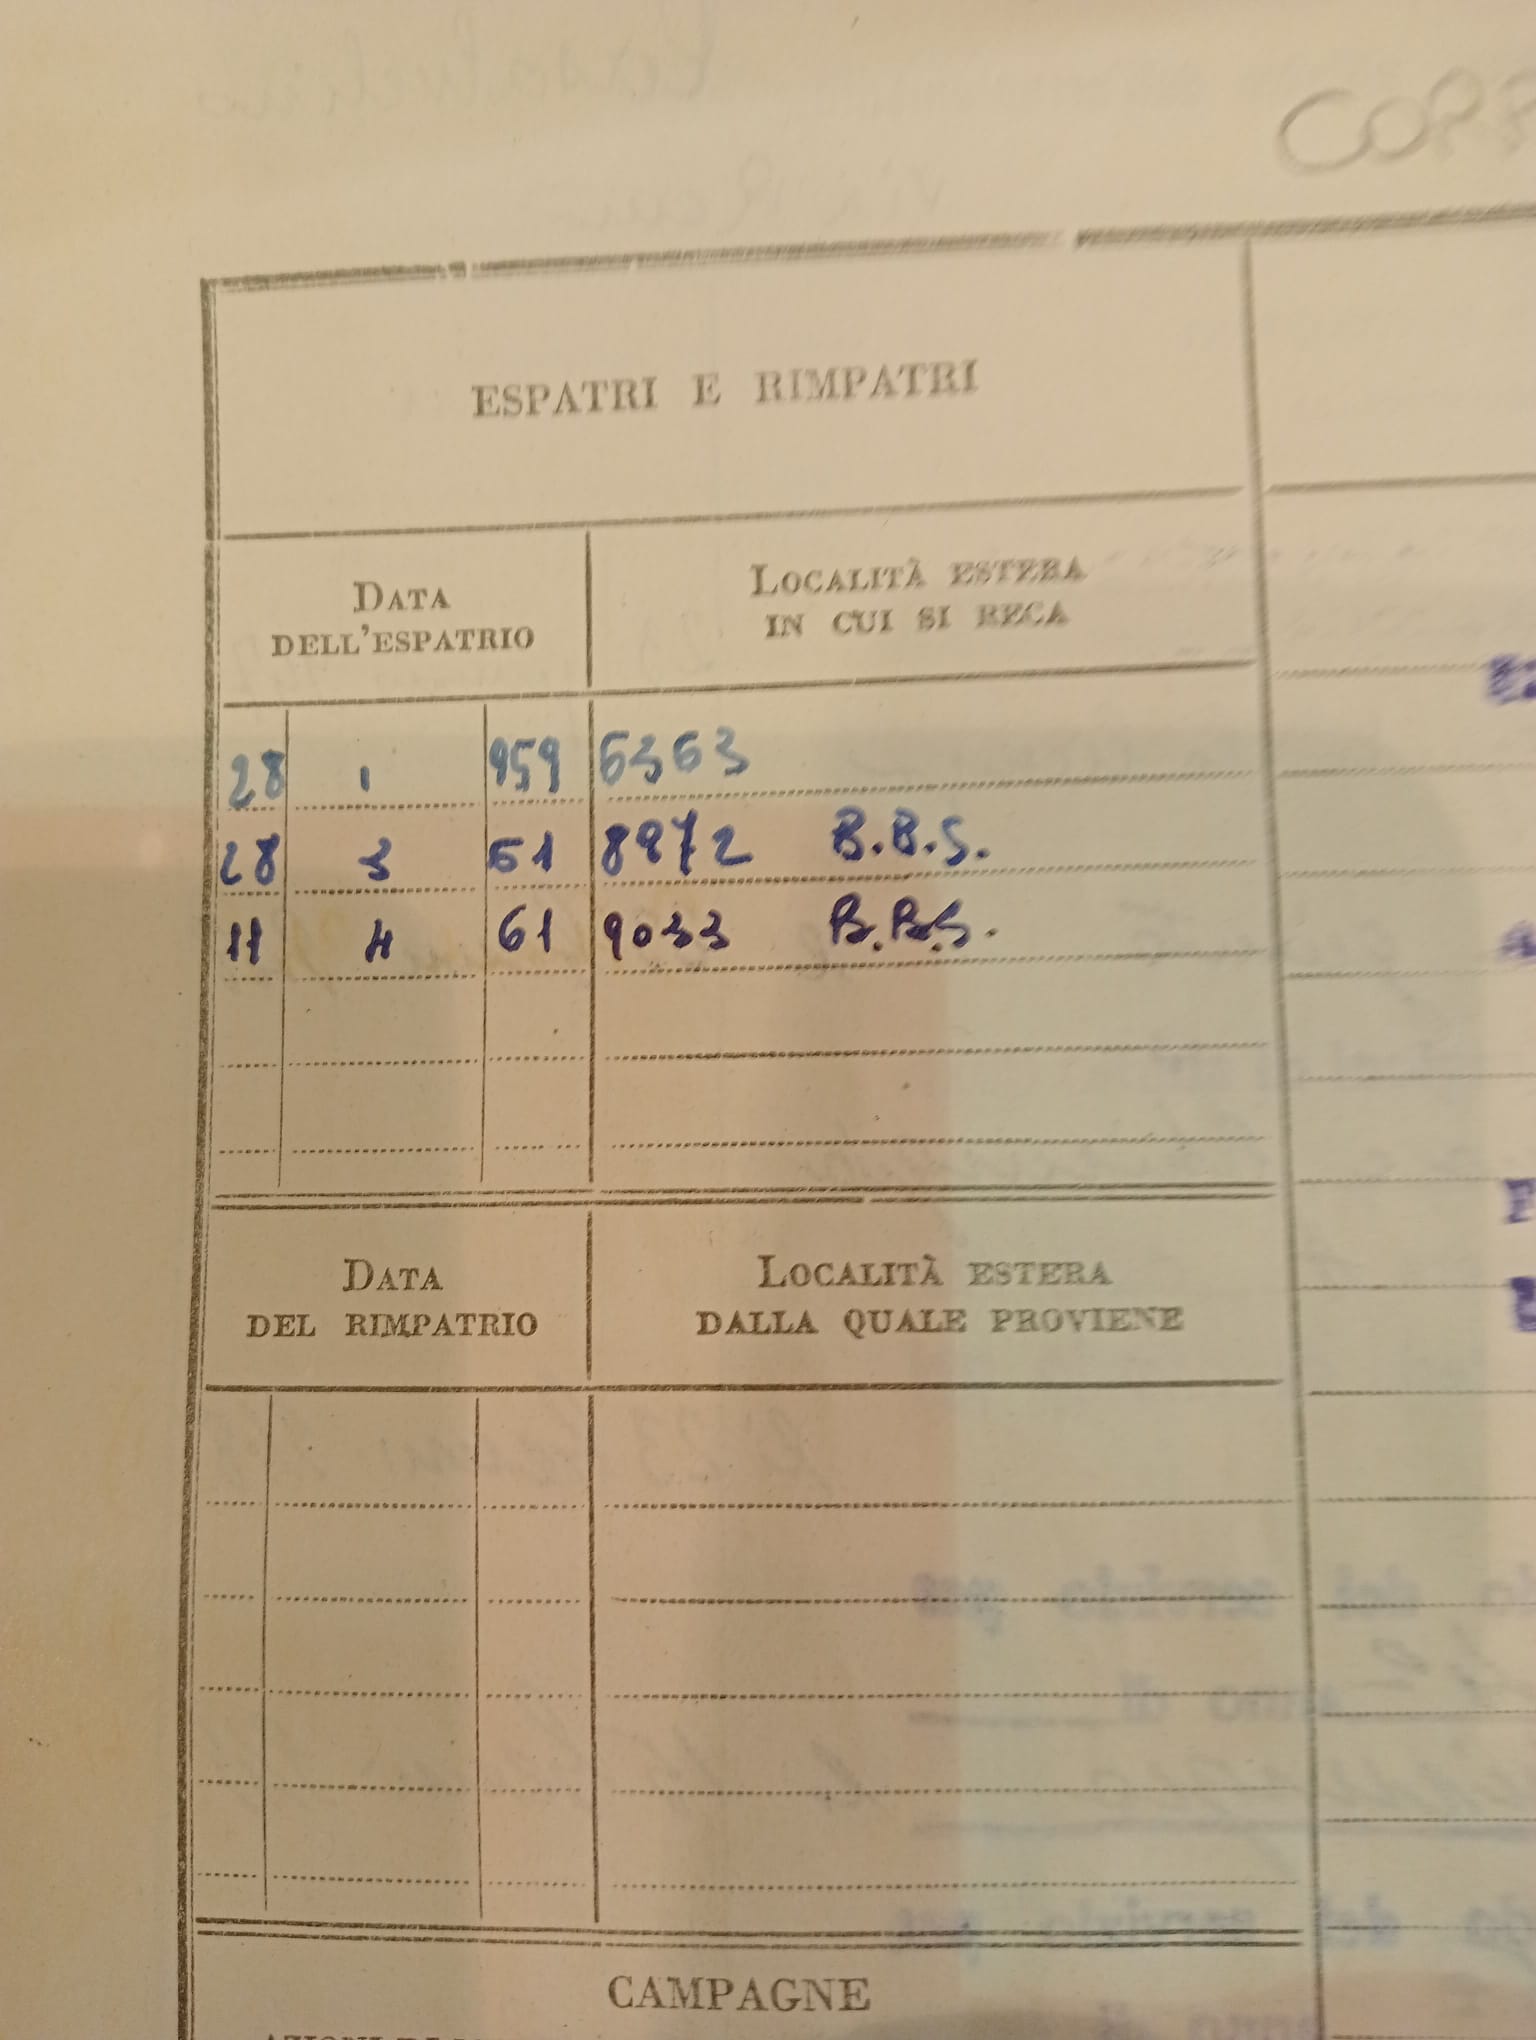 ESPATRI E RIMPATRI
DATA
DELL'ESPATRIO
LOCALITÀ ESTERA
IN CUI SI RECA
28 1 959 6363
28 3 61 8972 B.B.S.
11 4 61 9033 B.B.S.
DATA
DEL RIMPATRIO
LOCALITÀ ESTERA
DALLA QUALE PROVIENE
CAMPAGNE